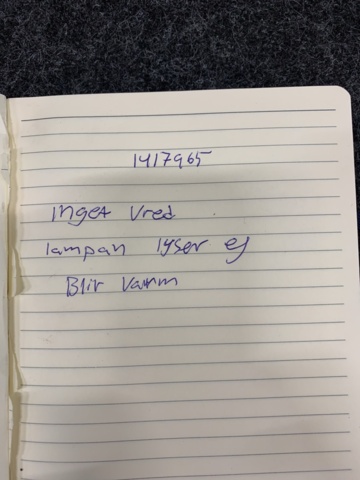 1417965
Inget Vred
lampan lyser ej
Blir Varm